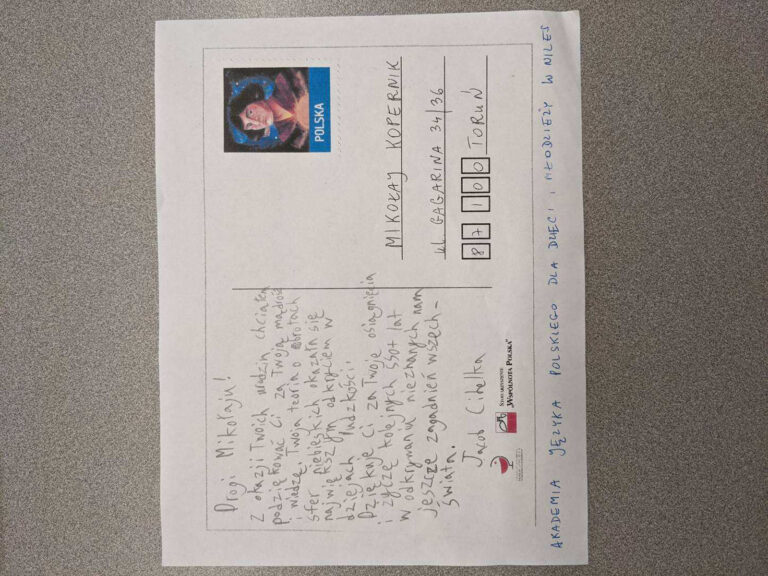 Drogi Mikołaju!
Z okazji Twoich urodzin chciałem
podziękować Ci za Twoją mądrość
i wiedzę. Twoja teoria o obrotach
sfer niebieskich okazała się
największym odkryciem w
dziejach ludzkości.
Dziękuję Ci za Twoje osiągnięcia
i życzę kolejnych 550+ lat
w odkrywaniu nieznanych nam
jeszcze zagadnień wszech-
świata.
Jacob Cihelka
STOWARZYSZENIE
„WSPÓLNOTA POLSKA”
POLSKA
MIKOŁAY KOPERNIK
ul GAGARINA 34/36
87 100 TORUŃ
AKADEMIA JĘZYKA POLSKIEGO DLA DZIECI I MŁODZIEŻY W NILES